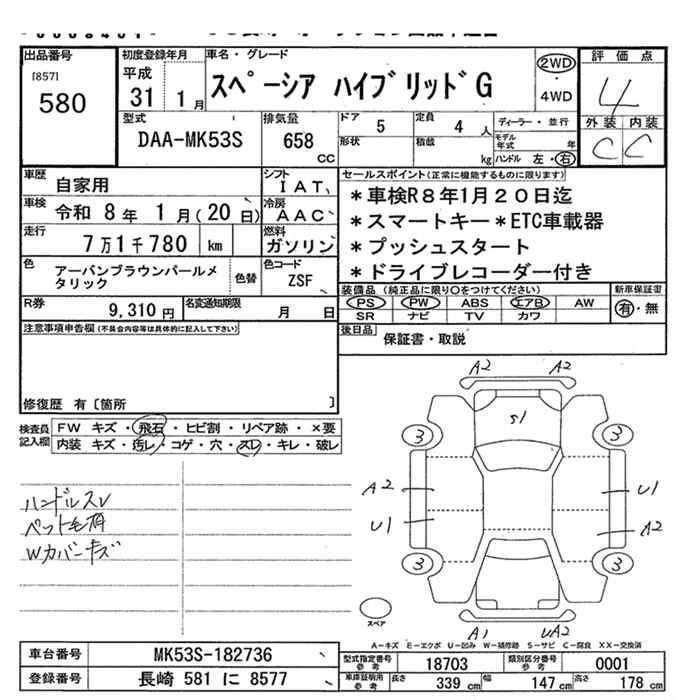 出品番号
[857]
580
初度登録年月
平成
31 1 月
車名・グレード
スペーシア ハイブリッドG
2WD
4WD
評価点
4
外装 内装
C C
型式
DAA-MK53S
排気量
658
CC
ドア
5
定員
4 人
形状
積載
kg
ディーラー・並行
モデル年式 年
ハンドル 左・右
車歴
自家用
シフト
IAT
車検
令和 8年 1月(20日)
冷房
AAC
走行
7万1千780 km
燃料
ガソリン
色
アーバンブラウンパールメタリック
色替
色コード
ZSF
R券
9,310 円
名変通知期限
月 日
セールスポイント(正常に機能するものに限ります)
*車検R8年1月20日迄
*スマートキー*ETC車載器
*プッシュスタート
*ドライブレコーダー付き
装備品(純正品に限り○をつけてください)
新車保証書
PS PW ABS エアB AW
SR ナビ TV カワ
有・無
後日品
保証書・取説
注意事項申告欄(不具合内容等は具体的に記入して下さい)
修復歴 有〔箇所 〕
検査員記入欄
FW キズ・飛石・ヒビ割・リペア跡・×要
内装 キズ・汚レ・コゲ・穴・スレ・キレ・破レ
ハンドルスレ
ペット毛有
Wカバーキズ
A2 A2
S1
3 3
A2 U1
U1 A2
3 3
スペア
A1 UA2
A-キズ E-エクボ U-凹み W-補修跡 S-サビ C-腐食 XX-交換済
車台番号
MK53S-182736
登録番号
長崎 581 に 8577
型式指定番号 参考
18703
類別区分番号 参考
0001
車庫証明用 参考
長さ 339 cm 幅 147 cm 高さ 178 cm